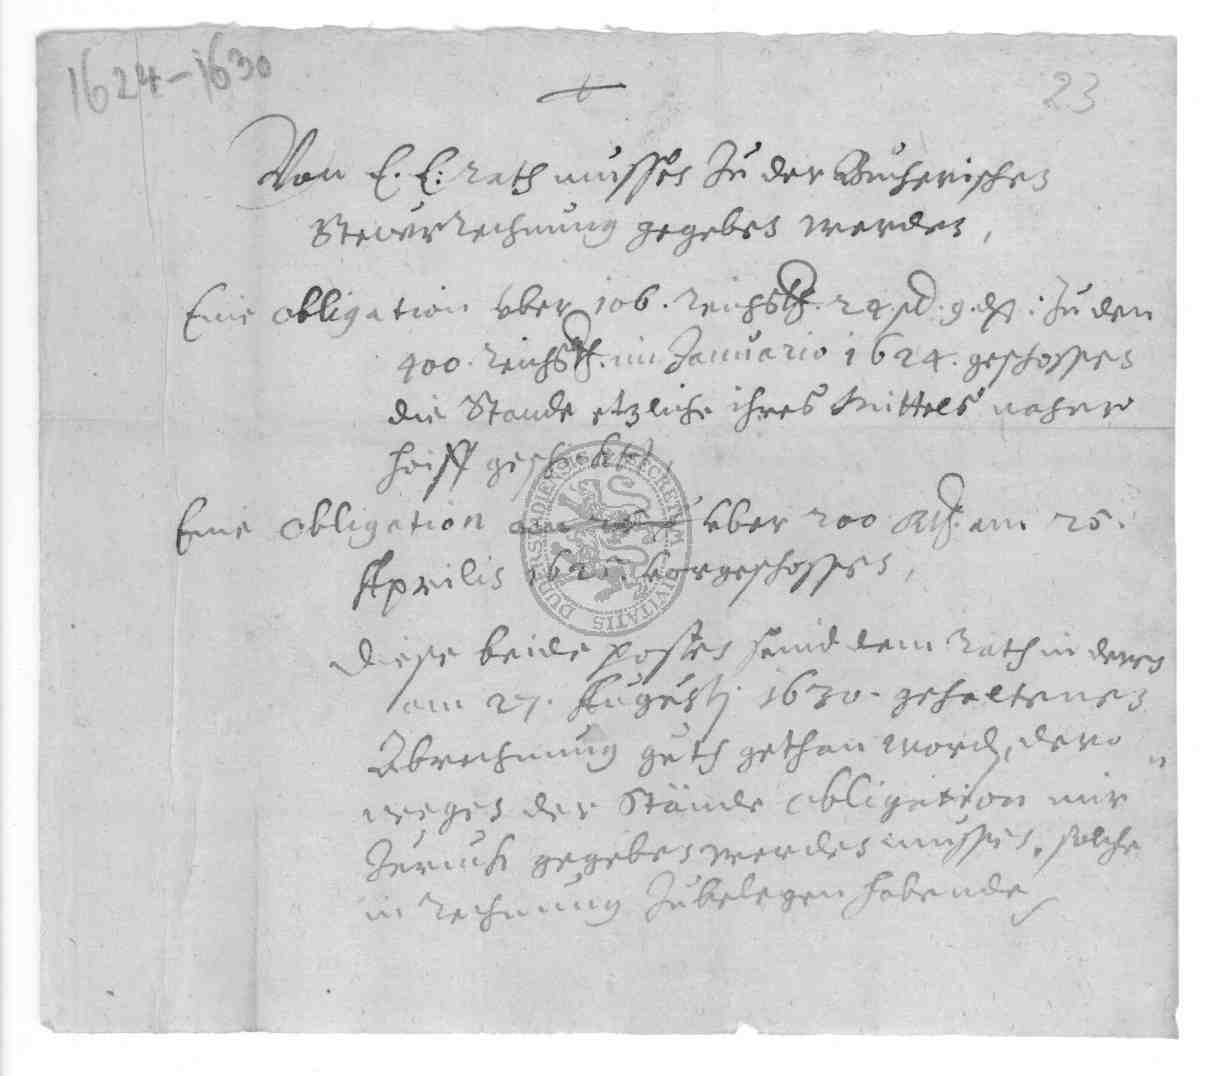 1624-1630
23
Von E. E. Rath mussen Zu der Bucherischen
Steurrechnung gegeben werden,
Eine obligation vber 106. Reichsth. 24 ßd. g. Zu den
400. Reichsth. im Januario 1624. geschossen
die Stande etzliche ihres Mittels naher
geschickt,
Eine obligation vber 200 Rth. am 25.
Aprilis 1625. vorgeschossen,
Diese beide posten seind dem Rath in deren
am 27. Augusti 1630. gehaltenen
Abrechnung guth gethan word, dero
wegen der Stände obligation mir
Zuruck gegeben werden mussen, solche
in Rechnung Zubelegen habende
SECRETUM CIVITATIS DUDERSTADIENSIS